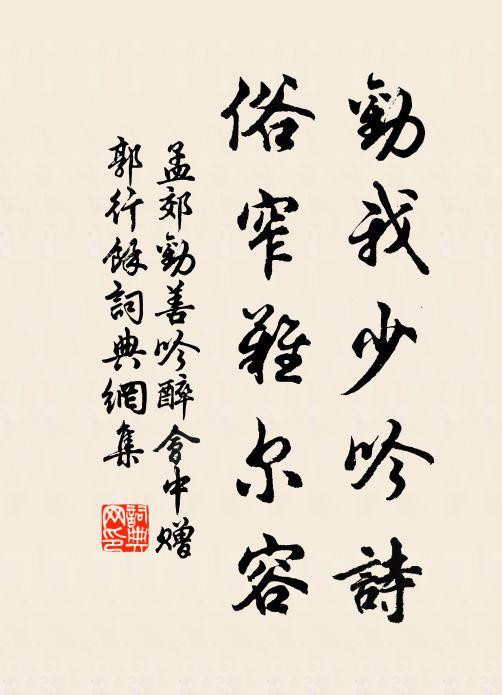 勸我少吟詩
俗窄難尔容
孟郊勸善吟醉會中贈
郭行餘詞典網集
詞典网印